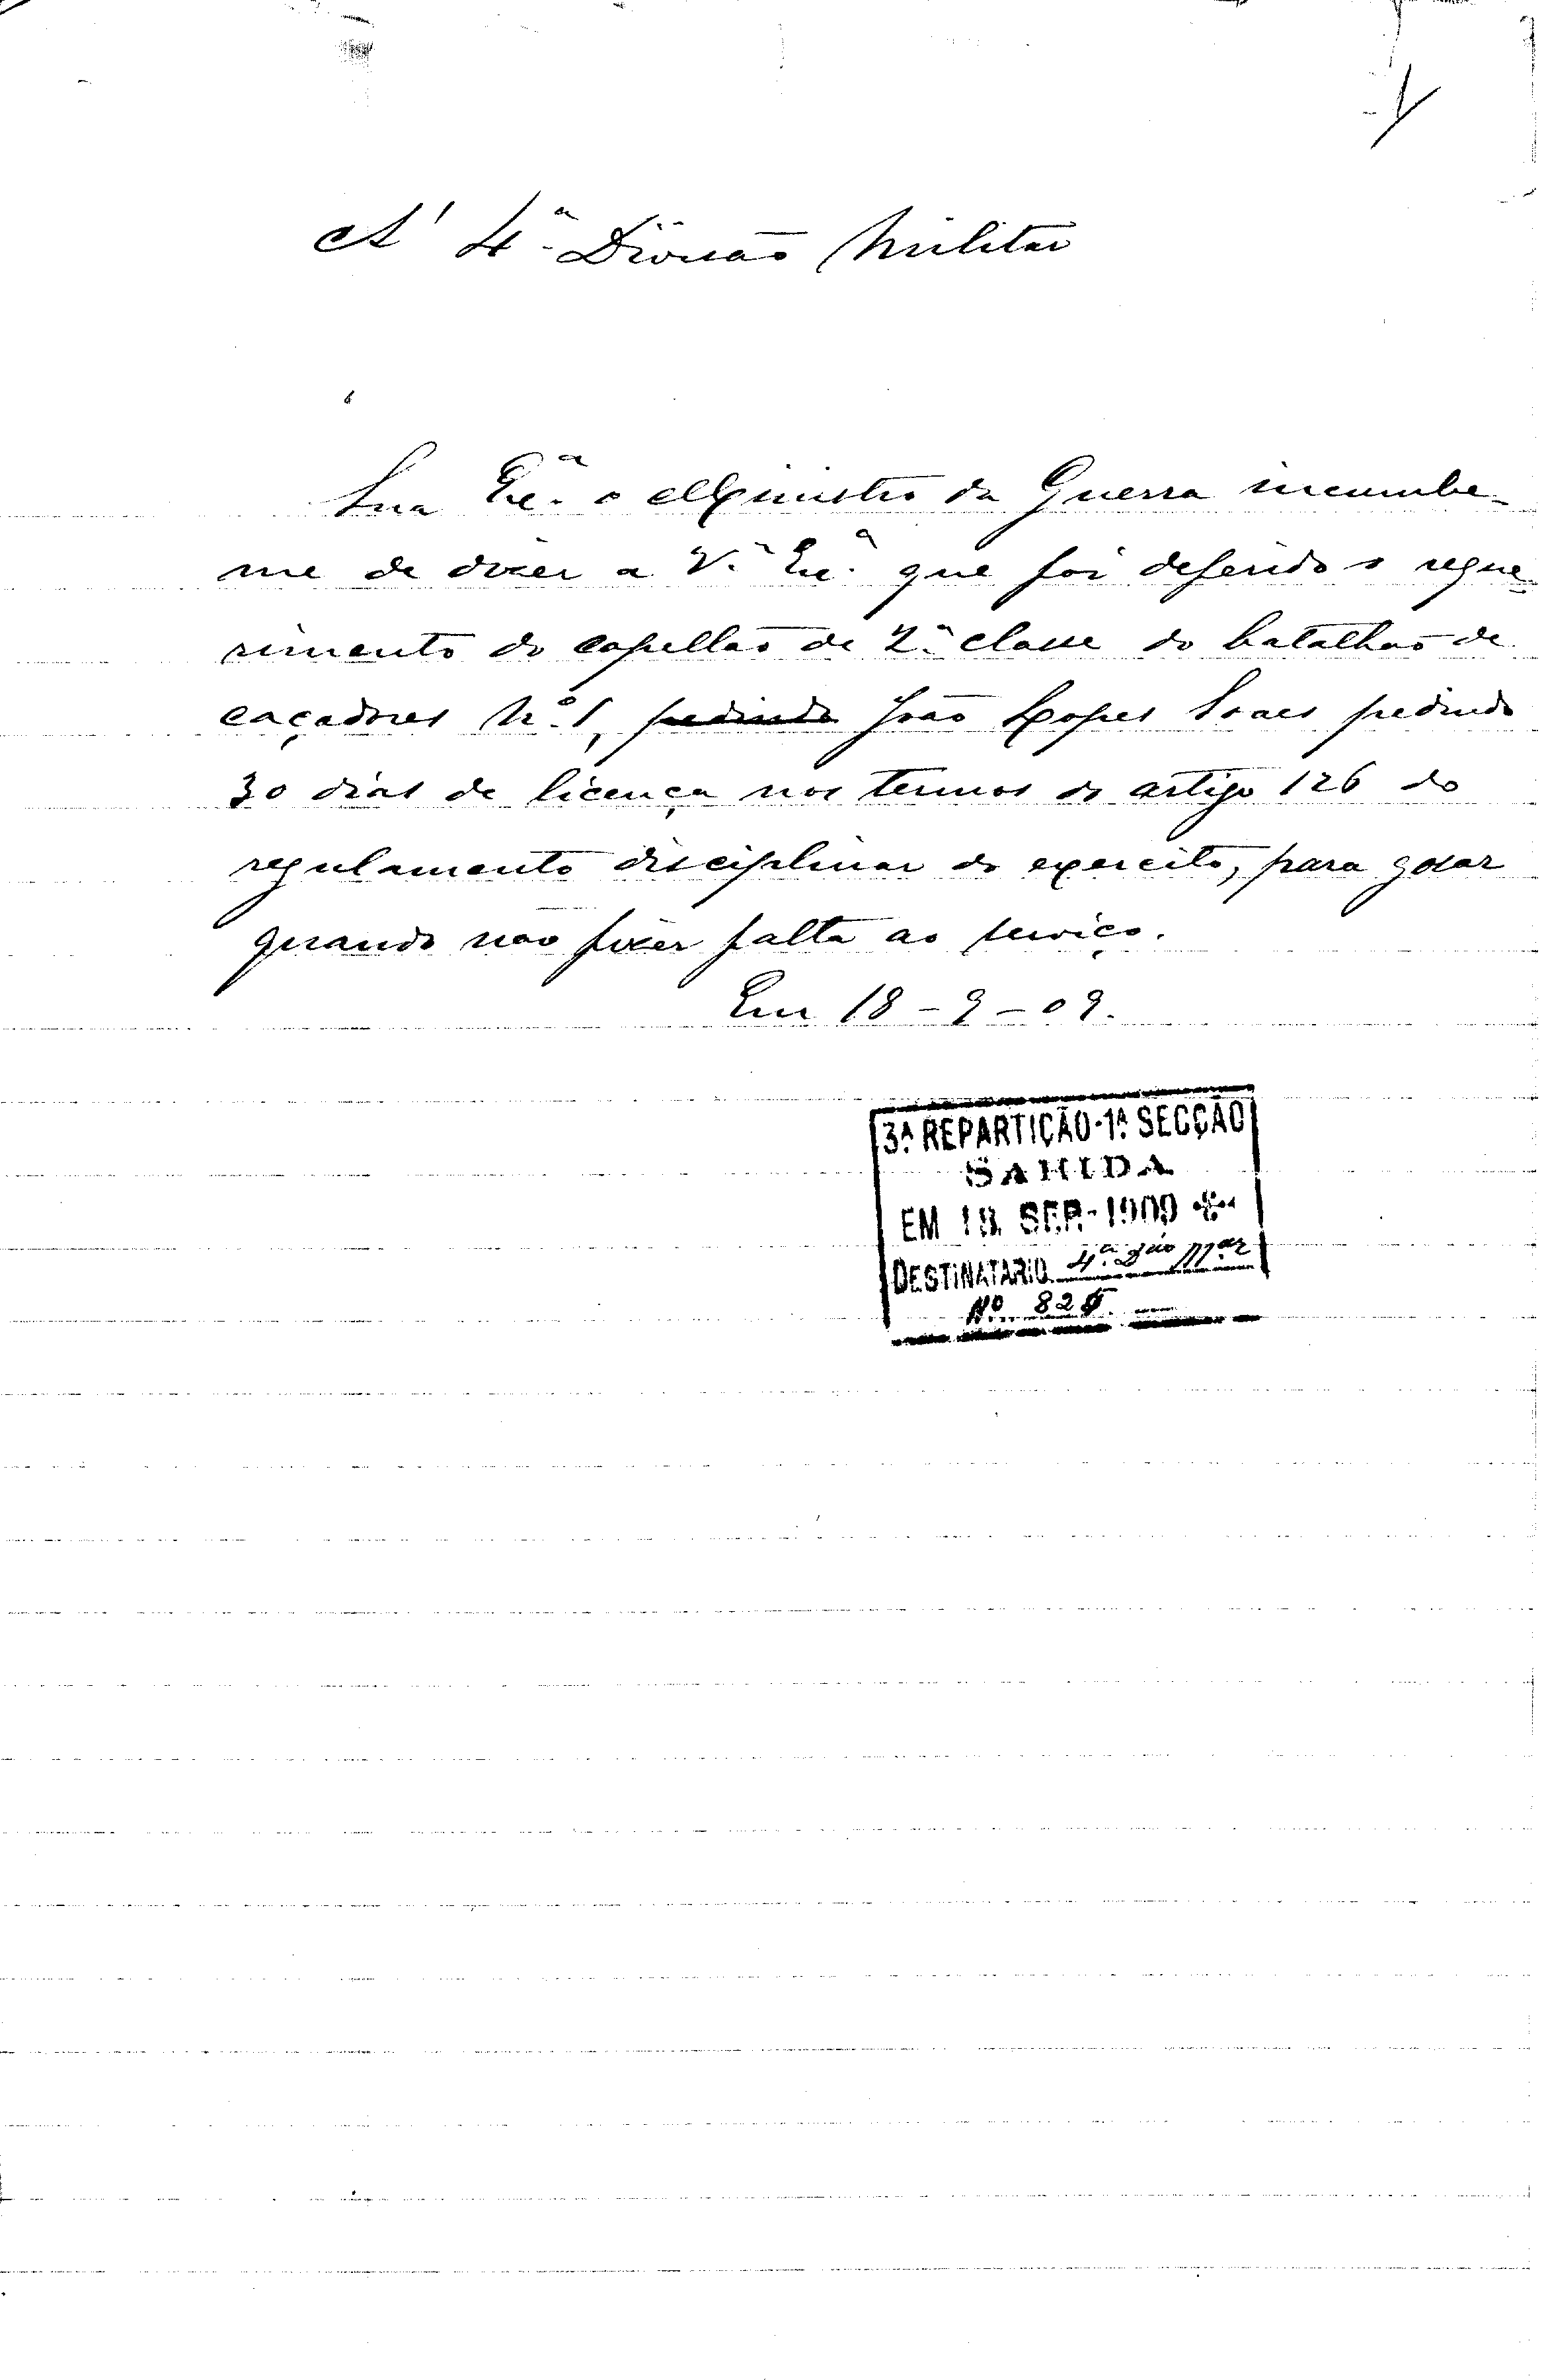 A' 4ª Divisão Militar
Sua Exª o Ministro da Guerra incumbe-
me de dizer a V.ª Exª que foi deferido o reque-
rimento do capellão de 2ª classe do batalhão de
caçadores nº 1, pedindo João Lopes Soares pedindo
30 dias de licença nos termos do artigo 126 do
regulamento disciplinar do exercito, para gosar
quando não fizer falta ao serviço.
Em 18-9-09.
3ª REPARTIÇÃO-1ª SECÇÃO
SAHIDA
EM 18. SER-1909
DESTINATARIO 4ª Dão Mar
Nº